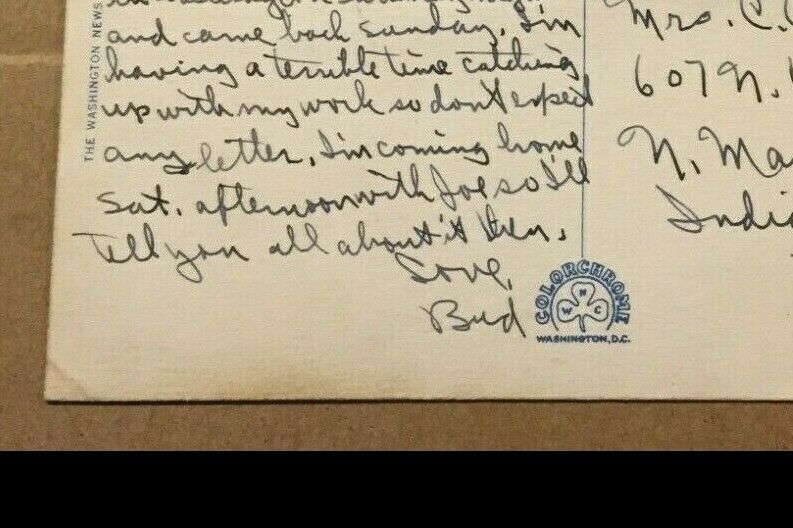 and came back Sunday. I'm
having a terrible time catching
up with my work so don't expect
any letter. I'm coming home
Sat. afternoon with Joe so I'll
Tell you all about it then.
Love,
Bud
THE WASHINGTON NEWS
Mrs. C.
607 N.
N. Ma
India
COLORCHROME
W N C
WASHINGTON, D.C.